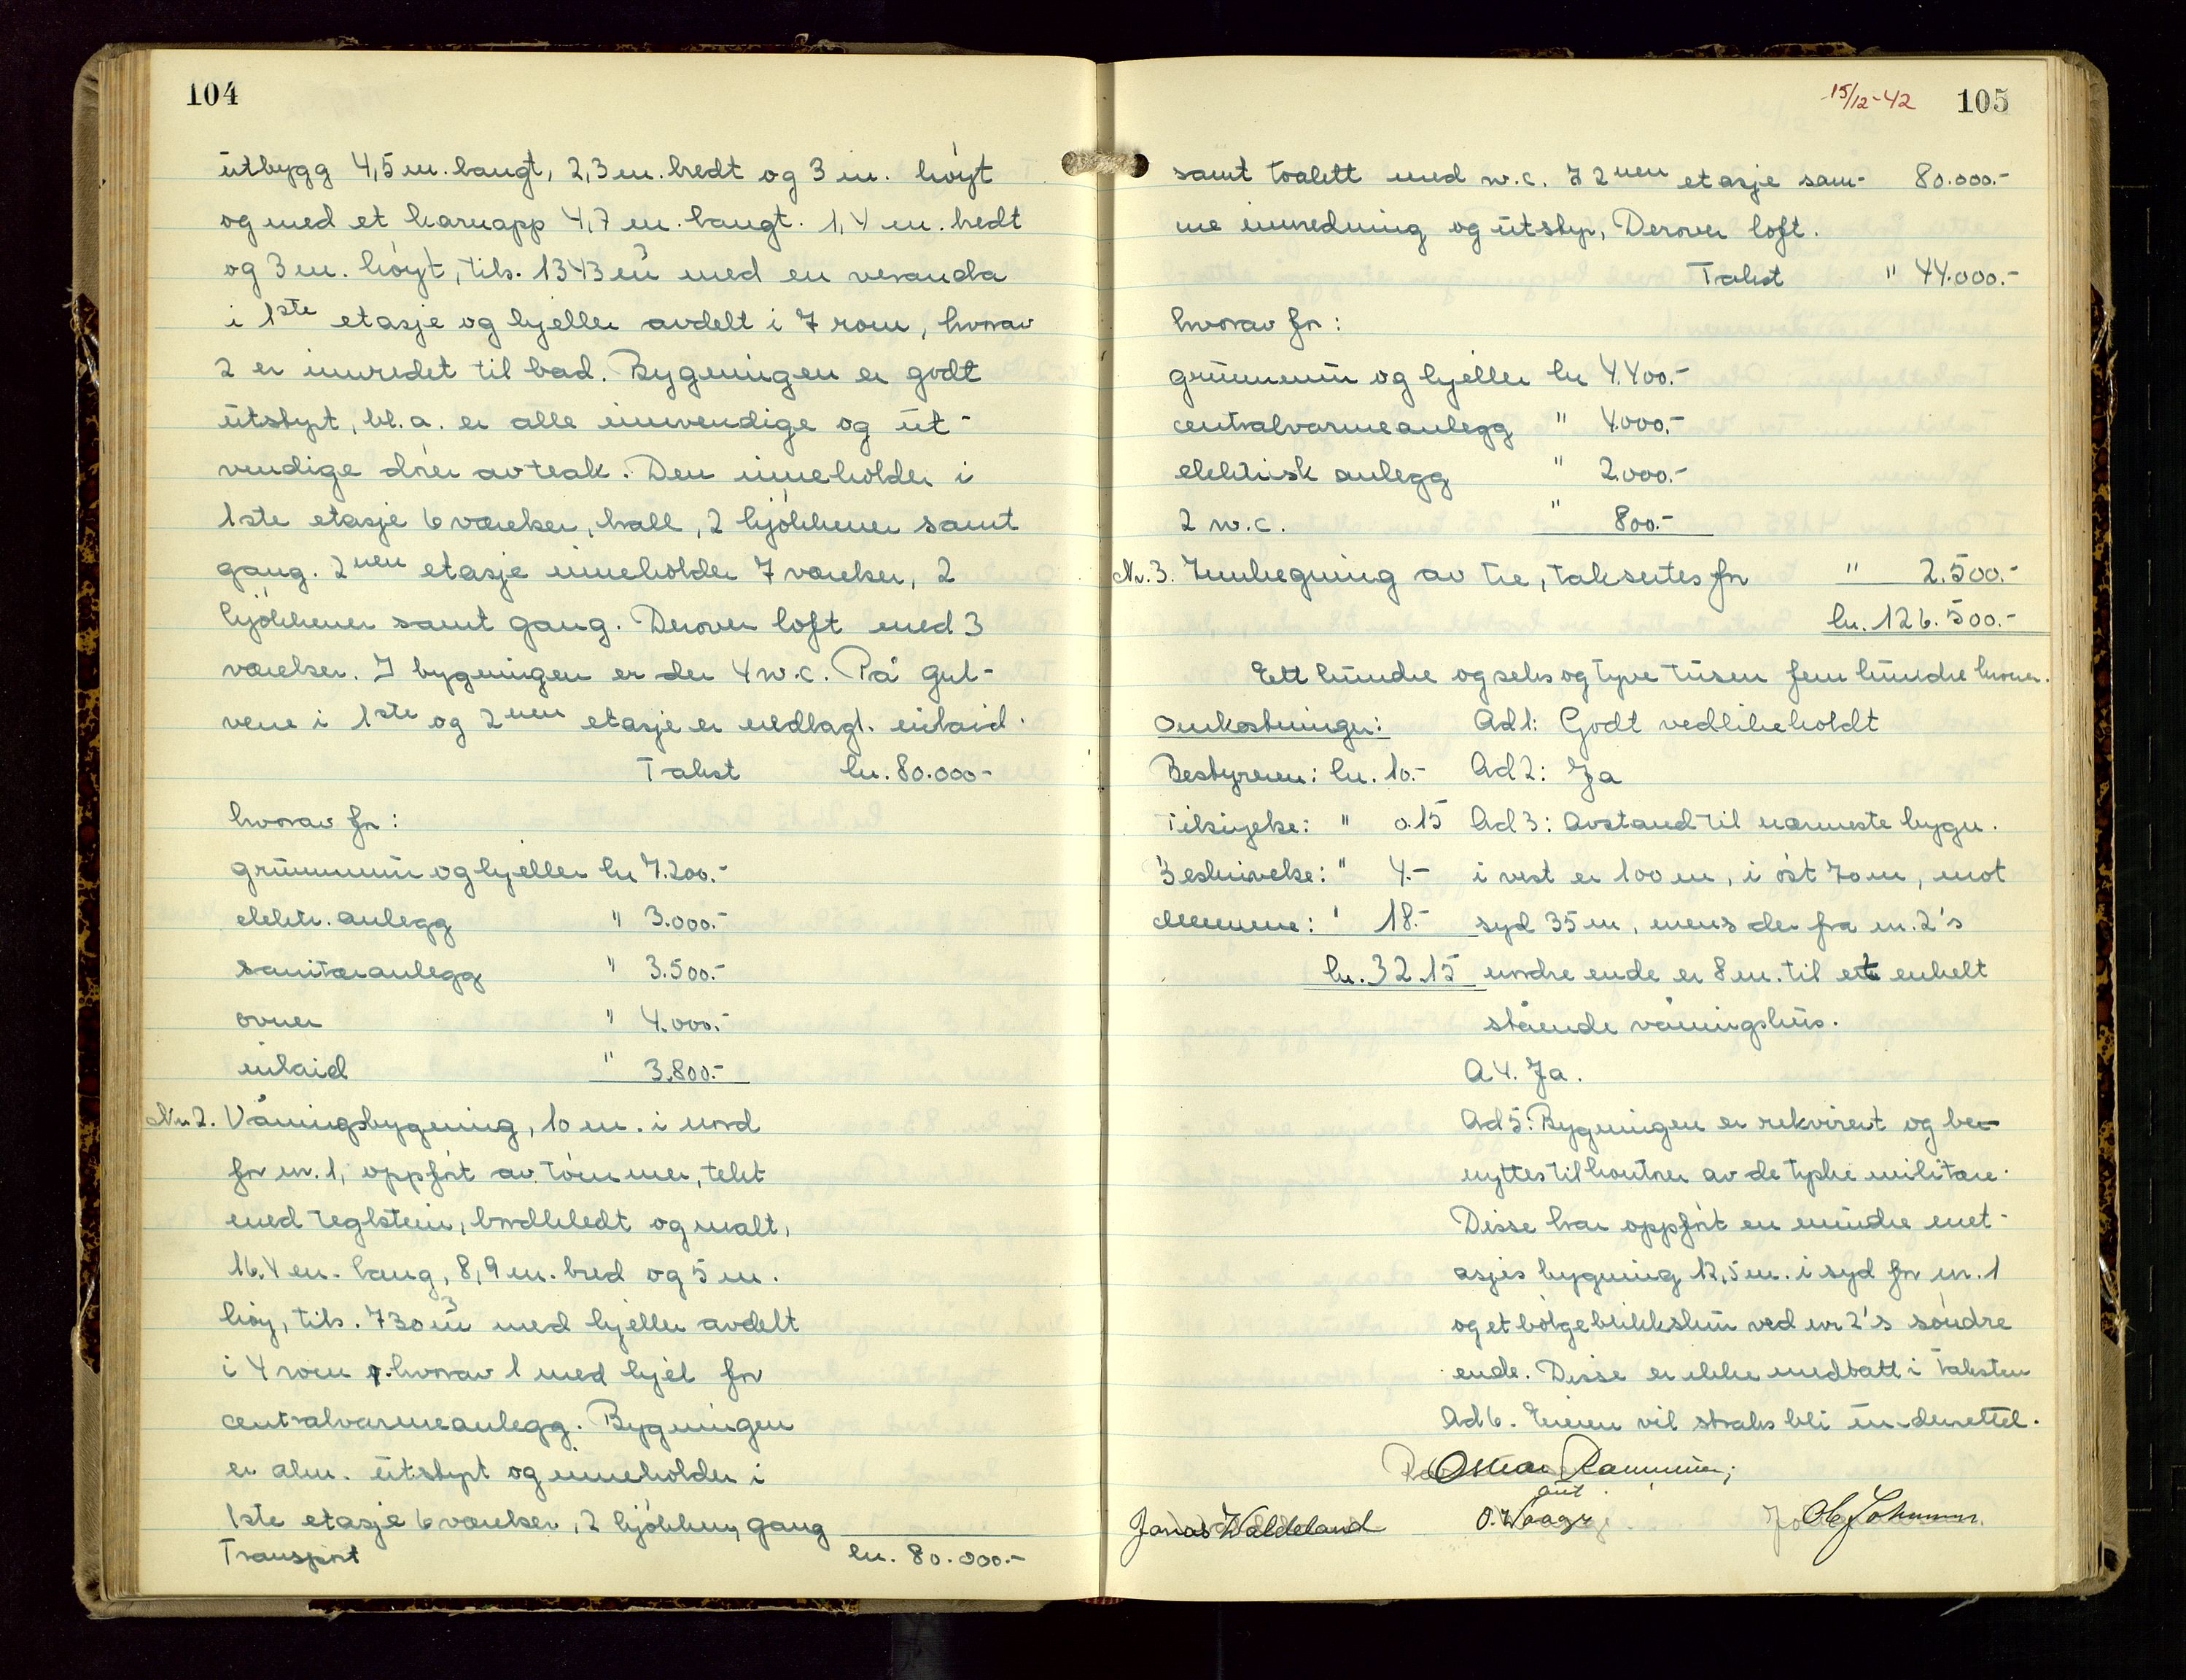 104
utbygg 4,5 m. langt, 2,3 m. bredt og 3 m. høyt
og med et karnapp 4,7 m. langt. 1,4 m. bredt
og 3 m. høyt, tils. 1343 m³ med en veranda
i 1ste etasje og kjeller avdelt i 7 rom, hvorav
2 er innredet til bad. Bygningen er godt
utstyrt, bl. a. er alle innvendige og ut-
vendige dører av teak. Den inneholder i
1ste etasje 6 værelser, hall, 2 kjøkkener samt
gang. 2nen etasje inneholder 7 værelser, 2
kjøkkener samt gang. Derover loft med 3
værelser. I bygningen er der 4 w.c. På gul-
vene i 1ste og 2nen etasje er nedlagt. inlaid.
Takst kr. 80.000-
hvorav for:
grunnmur og kjeller kr 7.200.-
elektr. anlegg " 3.000.-
sanitæranlegg " 3.500.-
ovner " 4.000.-
inlaid " 3.800.-
Nr. 2. Våningsbygning, 10 m. i nord
for nr. 1, oppført av tømmer, tekt
med teglstein, bordkledt og malt,
16,4 m. lang, 8,9 m. bred og 5 m.
høy, tils. 730 m³ med kjeller avdelt
i 4 rom, hvorav 1 med kjel for
centralvarmeanlegg. Bygningen
er alm. utstyrt og inneholder i
1ste etasje 6 værelser, 2 kjøkken, gang
Transport kr. 80.000.-
15/12-42 105
samt toalett med w.c. I 2nen etasje sam- 80.000.-
me innredning og utstyr, Derover loft.
Takst " 44.000.-
hvorav for:
grunnmur og kjeller kr 4.400.-
centralvarmeanlegg " 4.000.-
elektrisk anlegg " 2.000.-
2 w.c. " 800.-
Nr. 3. Innhegning av tre, takseres for " 2.500.-
kr. 126.500.-
Ett hundre og seks og tyve tusen fem hundre kroner.
Omkostninger: Ad 1: Godt vedlikeholdt
Bestyreren: kr. 10.- Ad 2: Ja
Tilsigelse: " 0.15 Ad 3: Avstand til nærmeste bygn.
Beskrivelse: " 4.- i vest er 100 m, i øst 70 m, mot
Mennene: " 18.- syd 35 m, mens der fra nr. 2's
kr. 32.15 nordre ende er 8 m. til et enkelt
stående våningshus.
A 4. Ja.
Ad 5: Bygningen er rekvirert og be-
nyttes til kontor av de tyske militære.
Disse har oppført en mindre enet-
asjes bygning 12,5 m. i syd for nr. 1
og et bølgeblikkskur ved nr 2's søndre
ende. Disse er ikke medtatt i taksten
Ad 6. Eieren vil straks bli underrettet.
Jonas Waldeland O. Waage Ole Johannesen